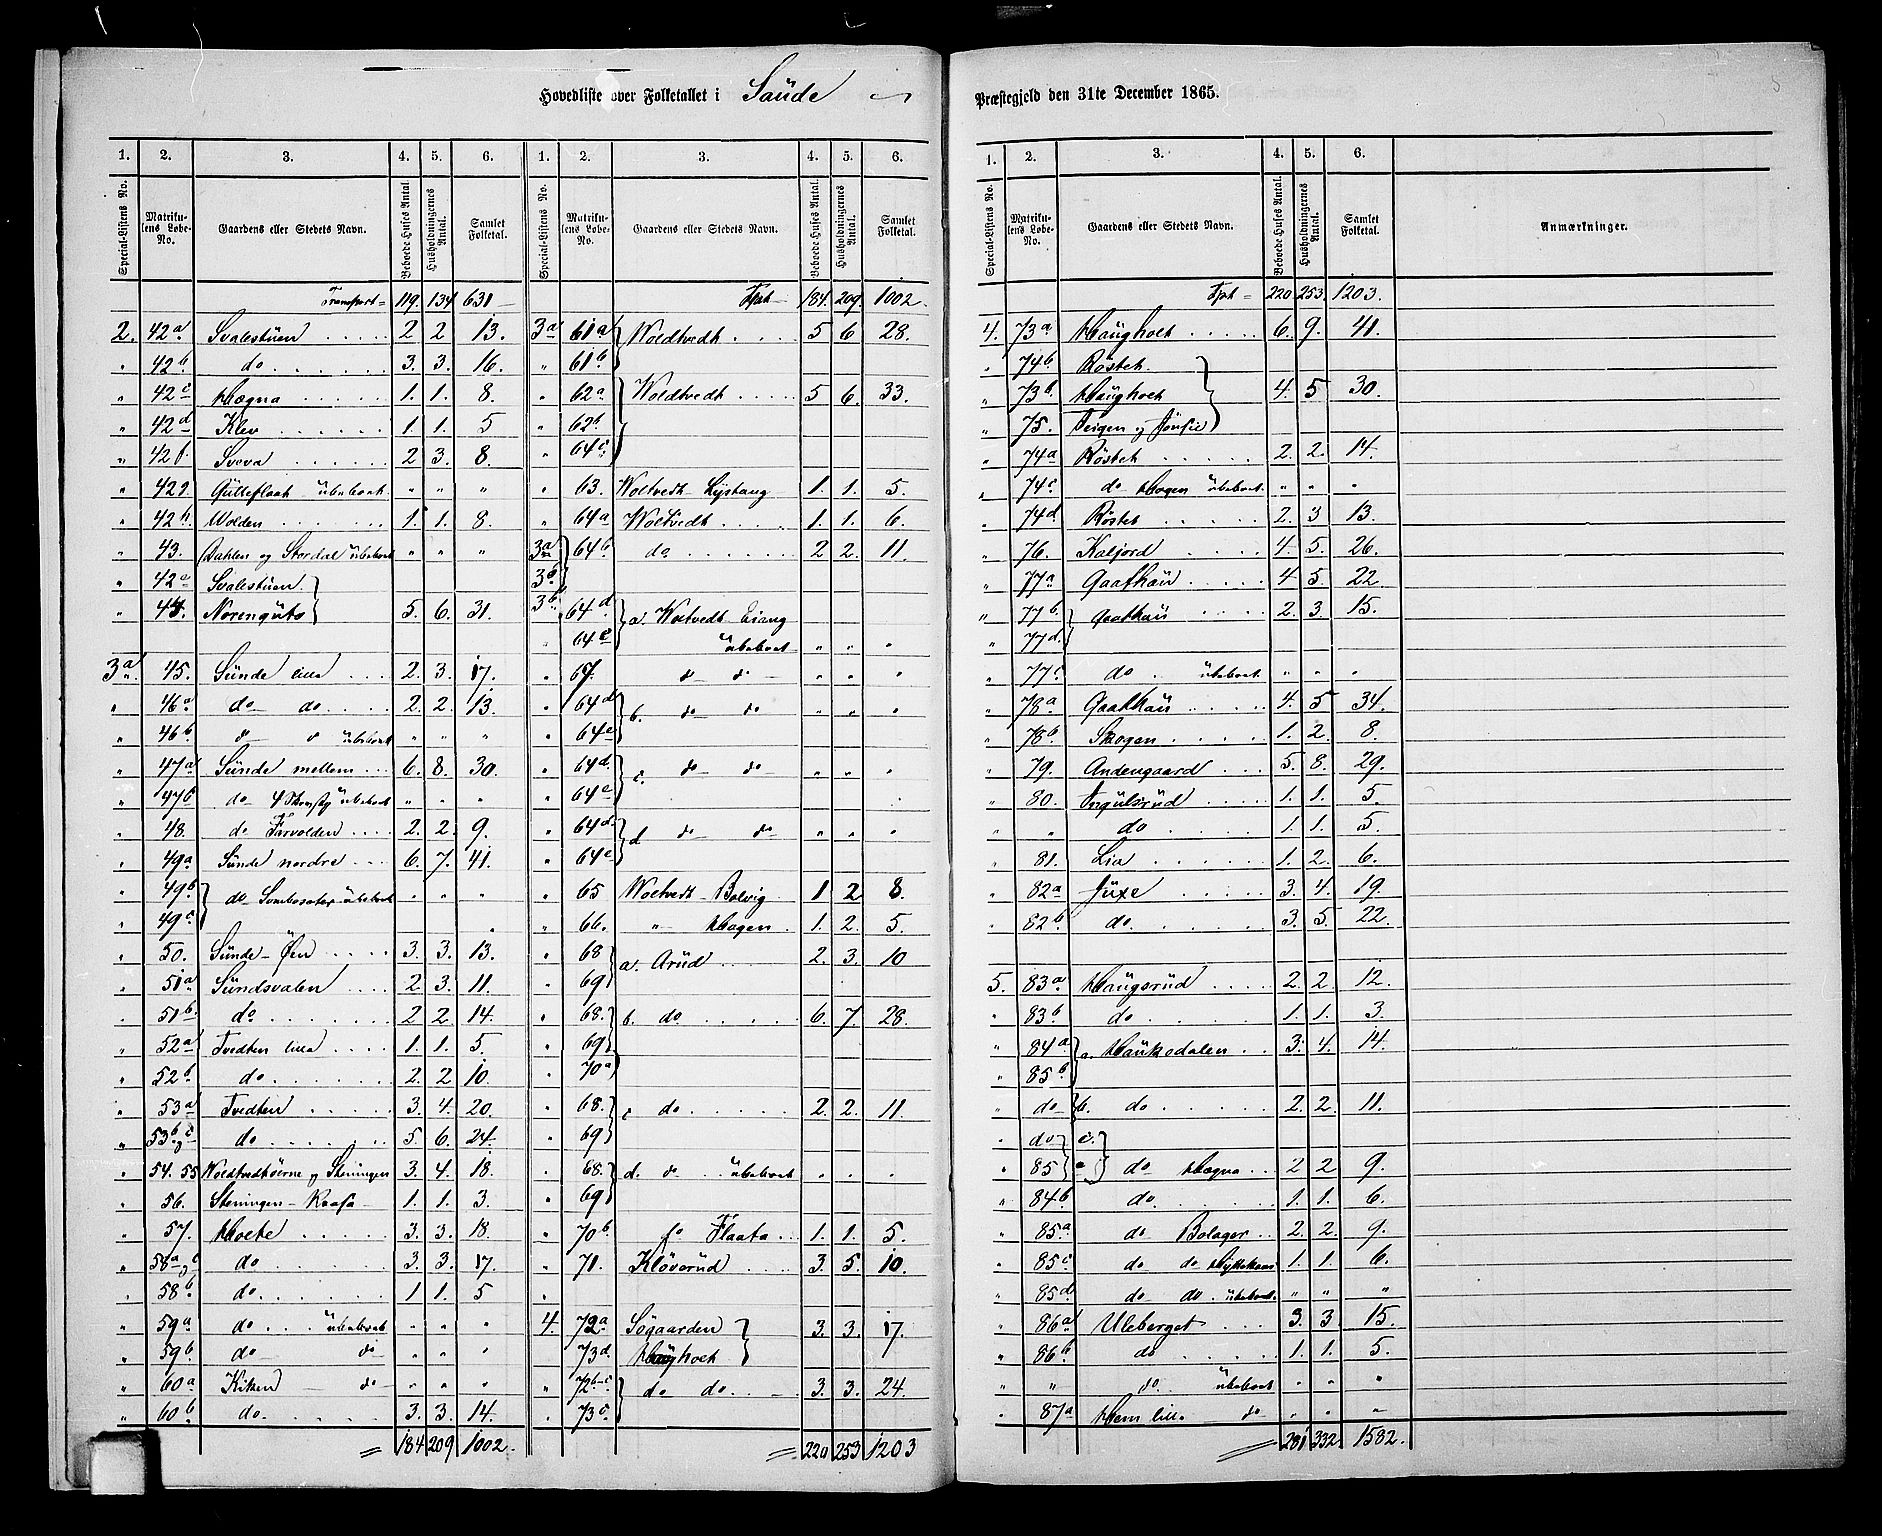 Hovedliste over Folketallet i Saude
Præstegjeld den 31te December 1865.
5
1. 2. 3. 4. 5. 6. 1. 2. 3. 4. 5. 6.
Special-Listens No. Matrikulens Løbe-No. Gaardens eller Stedets Navn. Beboede Huses Antal. Husholdningernes Antal. Samlet Folketal. Special-Listens No. Matrikulens Løbe-No. Gaardens eller Stedets Navn. Beboede Huses Antal. Husholdningernes Antal. Samlet Folketal.
Transport = 119. 134 631
2. 42a Svalestuen 2 2 13.
" 42b do 3. 3. 16.
" 42c Hægna 1. 1. 8.
" 42d Klev 1. 1. 5
" 42f. Sveva 2 3. 8.
" 42g Gulleflaat ubeboet " " "
" 42h Wolden 1. 1. 8.
" 43. Dahlen og Stordal ubeboet " " "
" 42e Svalestuen
" 44. Norengute 5. 6. 31.
3a 45. Sünde lille 2. 3. 17.
" 46a do do 2. 2. 13.
" 46b d d ubeboet " " "
" 47a Sünde mellem 6. 8. 30.
" 47b do ubeboet " " "
" 48. do Farvolden 2. 2. 9.
" 49a Sünde nordre 6. 7. 41.
" 49b do ubeboet " " "
" 49c
" 50. Sünde-Øen 3. 3. 13.
" 51a Sündsvalen 2. 3. 11.
" 51b do 2 2. 14.
" 52a Tvedten lille 1. 1. 5.
" 52b do 2. 2 10.
" 53a Tvedten 3. 4. 20.
" 53b og c do 5. 6. 24.
" 54. 55 Woldtvedthöerne og Steningen 3. 4. 18.
" 56. Steningen-Raasa 1. 1. 3.
" 57. Holte 3. 3. 18.
" 58a og c do 3. 3. 17.
" 58b do 1 1. 5
" 59a do ubeboet " " "
" 59b do do " " "
" 60a Kiken do " " "
" 60b do 3. 3. 14.
= 184 209 1002.
Tpt 184. 209. 1002.
3a 61a Woldtvedt 5 6 28.
" 61b
" 62a Woldtvedt 5 6. 33.
" 62b
" 64c
" 63. Woltvedt Lystang 1. 1. 5.
" 64a Woltvedt 1. 1. 6.
3a 64b do 2 2. 11.
3b
3b 64d a. Woltvedt Liang
" 64e ubeboet " " "
" 67. d d " " "
" 64d b. do do " " "
" 64e
" 64d c. do do " " "
" 64e
" 64d d do do " " "
" 64e
" 65 Woltvedt-Bolvig 1 2 8.
" 66. " Hagen 1. 2. 5.
" 68 a. Arüd 2. 3. 10
" 69
" 68. b. do 6. 7. 28.
" 69
" 70a
" 68. c do 2. 2. 11.
" 69
" 68. d. do ubeboet " " "
" 69
" 70b do Flaata 1. 1. 5.
" 71. Kløverüd 3. 5. 10.
4. 72a Søgaarden 3. 3. 17.
" 73d. Haugholt
" 72b-c do do 3. 3. 24.
" 73c.
= 220 253 1203
1. 2. 3. 4. 5. 6.
Special-Listens No. Matrikulens Løbe-No. Gaardens eller Stedets Navn. Beboede Huses Antal. Husholdningernes Antal. Samlet Folketal. Anmærkninger.
Tpt = 220 253. 1203.
4. 73a Haugholt 6. 9. 41.
" 74b Röstet
" 73b. Haugholt 4. 5 30.
" 75. Teigen og
" 74a Röstet 2. 2. 14.
" 74c do Hagen ubeboet " " "
" 74d Röstet 2. 3 13.
" 76. Kaljord 4. 5. 26.
" 77a Gaathaü 4 5. 22.
" 77b Gaathaü 2. 3. 15.
" 77d.
" 77c do ubeboet " " "
" 78a Gaathaü 4. 5 34.
" 78b Skogen 1. 2. 8.
" 79. Andengaard 5. 8. 29.
" 80. Ingulsrüd 1. 1. 5.
" " do 1. 1. 5.
" 81. Lia 1. 2. 6.
" 82a Juxe 3. 4. 19.
" 82b do 3. 5. 22.
5. 83a Haugsrüd 2. 2. 12.
" 83b do 1. 1. 3.
" 84a a. Haukedalen 3. 4. 14.
" 85b
" do b. do 2. 2. 11.
" do c.
" 85 do Hægna 2 2 9.
" 84b do. 1. 1. 6.
" 85a do Bolager 2. 2. 9.
" 85c do do 1. 1. 6.
" 85d do do ubeboet " " "
" 86a Uleberget 3. 3 15.
" 86b do 1. 1. 5.
" " do ubeboet " " "
" 87a Hem lille do " " "
= 281 332. 1582.